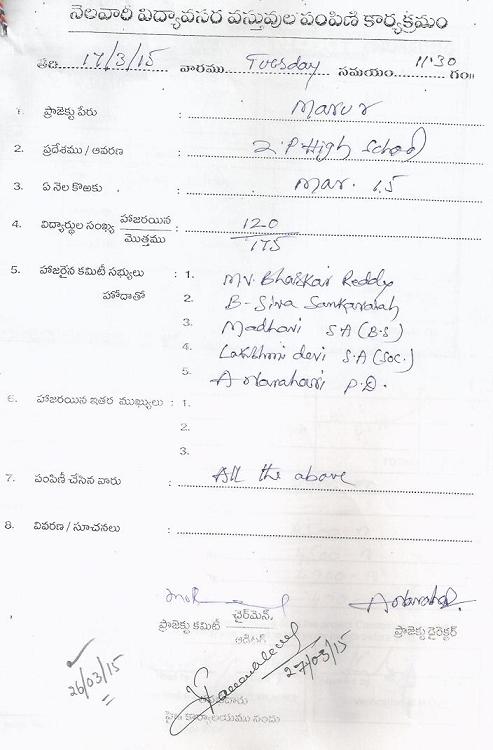 నెలవారీ విద్యావసర వస్తువుల పంపిణి కార్యక్రమం
తేది 17/3/15 వారము Tuesday సమయం 11.30 గం॥
1. ప్రాజెక్టు పేరు : Marur
2. ప్రదేశము / ఆవరణ : Z.P High School
3. ఏ నెల కొఱకు : Mar. 15
4. విద్యార్థుల సంఖ్య హాజరయిన / మొత్తము : 120 / 175
5. హాజరైన కమిటీ సభ్యులు : 1. M.V. Bhaskar Reddy
హోదాతో 2. B - Siva Sankaraiah
3. Madhavi S.A (B.S)
4. Lakshmi devi S.A (Soc.)
5. A Narahari P.D.
6. హాజరయిన ఇతర ముఖ్యులు : 1.
2.
3.
7. పంపిణీ చేసిన వారు : All the above
8. వివరణ / సూచనలు :
ప్రాజెక్టు కమిటీ ఛైర్‌మెన్. / ఆడిటర్
ప్రాజెక్టు డైరెక్టర్
26/03/15
27/03/15
కార్యాలయము నందు